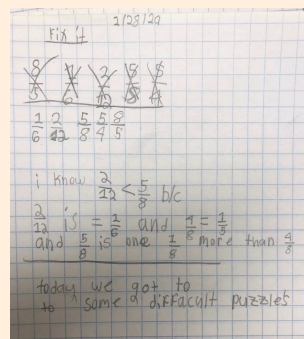 1/28/20
Fix it
8/5 1/6 2/12 5/8 5/4
1/6 2/12 5/8 5/4 8/5
i know 2/12 < 5/8 b/c
2/12 is = 1/6 and
and 5/8 is one 1/8 more than 4/8
today we got to
to some diffacult puzzles